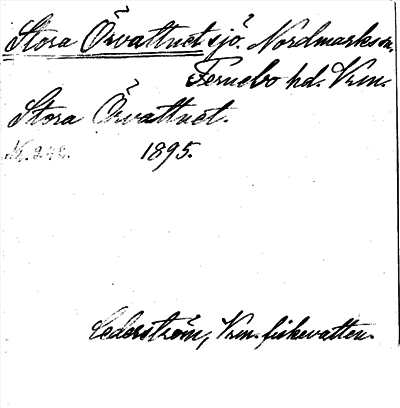 Stora Örvattnet sjö. Nordmarks sn.
Fernebo hd. Vrm.
Stora Örvattnet.
Nr. 248. 1895.
Cederström, Vrm. fiskevatten.